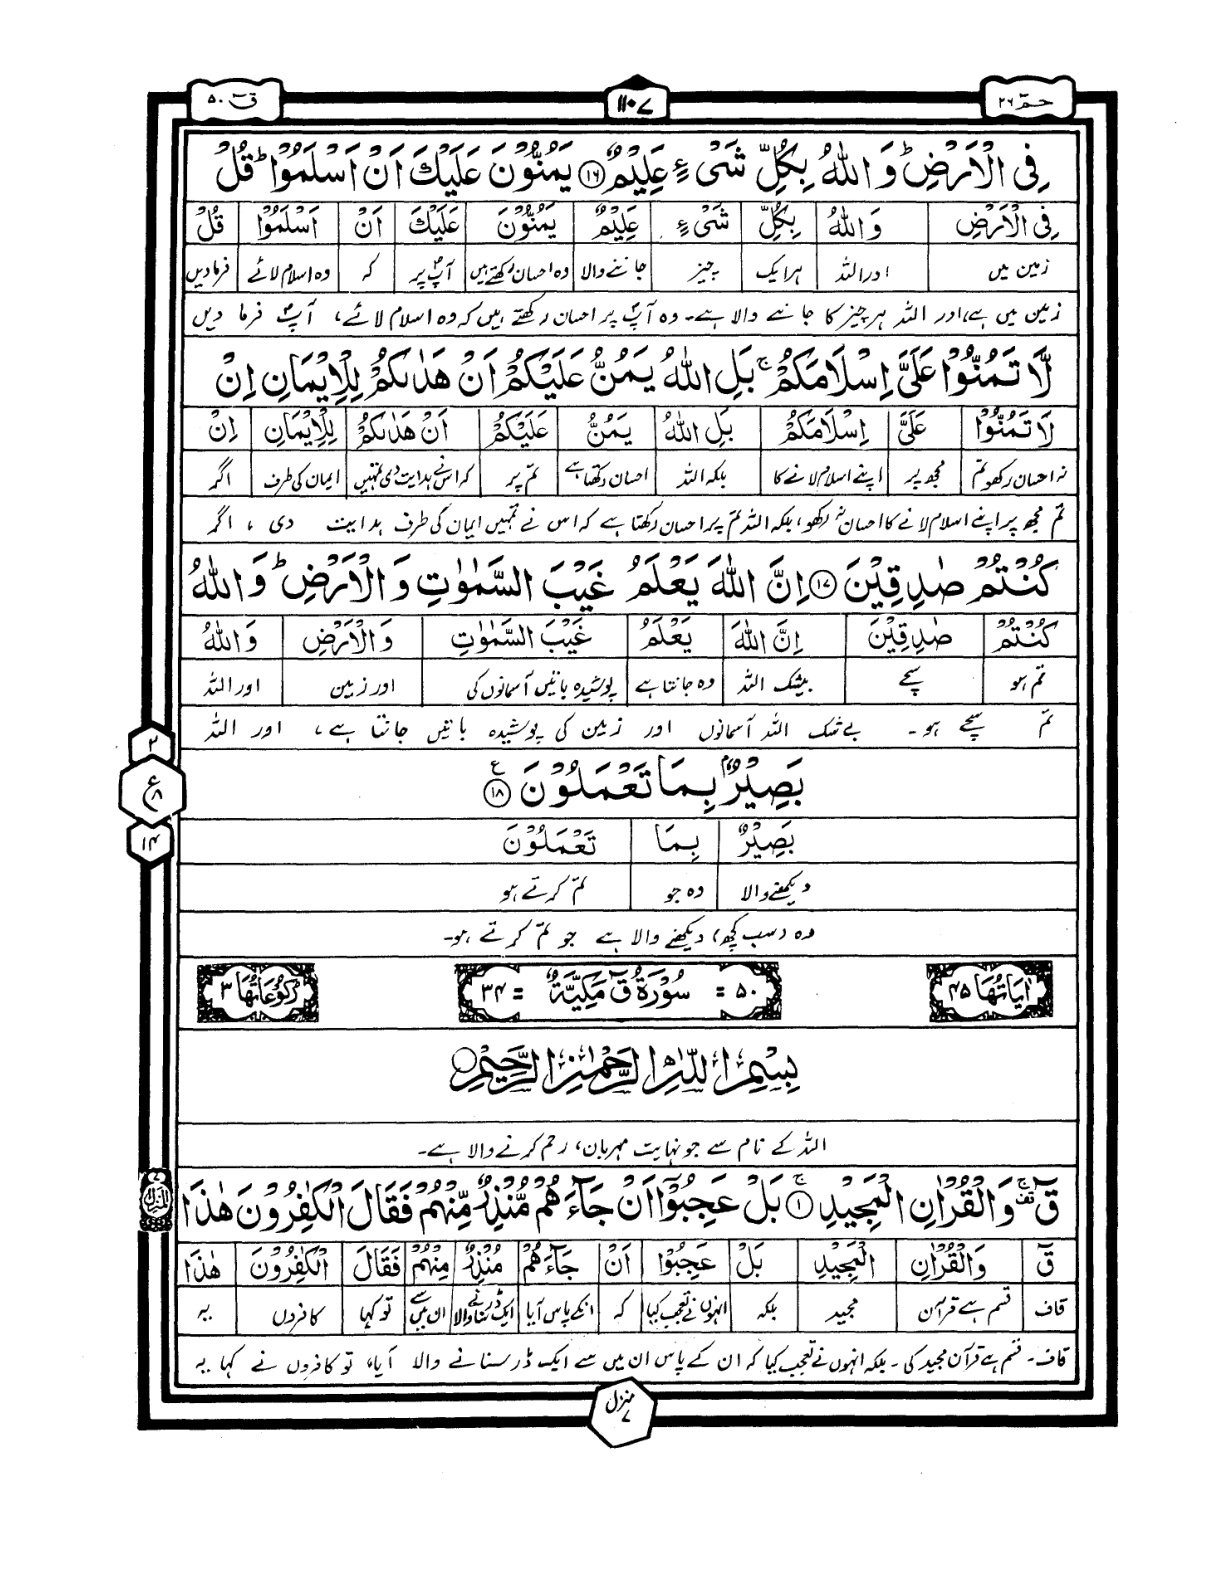 حٰمٓ ۲۶
۱۱۰۷
قٓ ۵۰
فِی الْاَرْضِ ؕ وَ اللّٰهُ بِكُلِّ شَیْءٍ عَلِیْمٌ ﴿۱۶﴾ یَمُنُّوْنَ عَلَیْكَ اَنْ اَسْلَمُوْا ؕ قُلْ
فِی الْاَرْضِ وَ اللّٰهُ بِكُلِّ شَیْءٍ عَلِیْمٌ یَمُنُّوْنَ عَلَیْكَ اَنْ اَسْلَمُوْا قُلْ
زمین میں اور اللہ ہر ایک چیز جاننے والا وہ احسان رکھتے ہیں آپؐ پر کہ وہ اسلام لائے فرمادیں
زمین میں ہے، اور اللہ ہر چیز کا جاننے والا ہے۔ وہ آپؐ پر احسان رکھتے ہیں کہ وہ اسلام لائے، آپؐ فرما دیں
لَّا تَمُنُّوْا عَلَیَّ اِسْلَامَكُمْ ۚ بَلِ اللّٰهُ یَمُنُّ عَلَیْكُمْ اَنْ هَدٰىكُمْ لِلْاِیْمَانِ اِنْ
لَا تَمُنُّوْا عَلَیَّ اِسْلَامَكُمْ بَلِ اللّٰهُ یَمُنُّ عَلَیْكُمْ اَنْ هَدٰىكُمْ لِلْاِیْمَانِ اِنْ
نہ احسان رکھو تم مجھ پر اپنے اسلام لانے کا بلکہ اللہ احسان رکھتا ہے تم پر کہ اسنے ہدایت دی تمہیں ایمان کی طرف اگر
تم مجھ پر اپنے اسلام لانے کا احسان نہ رکھو، بلکہ اللہ تم پر احسان رکھتا ہے کہ اس نے تمہیں ایمان کی طرف ہدایت دی، اگر
كُنْتُمْ صٰدِقِیْنَ ﴿۱۷﴾ اِنَّ اللّٰهَ یَعْلَمُ غَیْبَ السَّمٰوٰتِ وَ الْاَرْضِ ؕ وَ اللّٰهُ
كُنْتُمْ صٰدِقِیْنَ اِنَّ اللّٰهَ یَعْلَمُ غَیْبَ السَّمٰوٰتِ وَ الْاَرْضِ وَ اللّٰهُ
تم ہو سچے بیشک اللہ وہ جانتا ہے پوشیدہ باتیں آسمانوں کی اور زمین اور اللہ
تم سچے ہو۔ بے شک اللہ آسمانوں اور زمین کی پوشیدہ باتیں جانتا ہے، اور اللہ
بَصِیْرٌۢ بِمَا تَعْمَلُوْنَ ﴿۱۸﴾ ع
۲
ع ۸
۱۴
بَصِیْرٌ بِمَا تَعْمَلُوْنَ
دیکھنے والا وہ جو تم کرتے ہو
وہ (سب کچھ) دیکھنے والا ہے جو تم کرتے ہو۔
اٰیَاتُهَا ۴۵
۵۰ = سُوْرَةُ قٓ مَكِّیَّةٌ = ۳۴
رُكُوْعَاتُهَا ۳
بِسْمِ اللّٰهِ الرَّحْمٰنِ الرَّحِیْمِ
اللہ کے نام سے جو نہایت مہربان، رحم کرنے والا ہے۔
قٓ ۚ وَ الْقُرْاٰنِ الْمَجِیْدِ ﴿۱﴾ ۚ بَلْ عَجِبُوْۤا اَنْ جَآءَهُمْ مُّنْذِرٌ مِّنْهُمْ فَقَالَ الْكٰفِرُوْنَ هٰذَا
قٓ وَ الْقُرْاٰنِ الْمَجِیْدِ بَلْ عَجِبُوْا اَنْ جَآءَهُمْ مُنْذِرٌ مِنْهُمْ فَقَالَ الْكٰفِرُوْنَ هٰذَا
قاف قسم ہے قرآن مجید بلکہ انہوں نے تعجب کیا کہ انکے پاس آیا ایک ڈر سنانے والا ان میں سے تو کہا کافروں یہ
قاف۔ قسم ہے قرآن مجید کی۔ بلکہ انہوں نے تعجب کیا کہ ان کے پاس ان میں سے ایک ڈر سنانے والا آیا، تو کافروں نے کہا یہ
منزل ۷